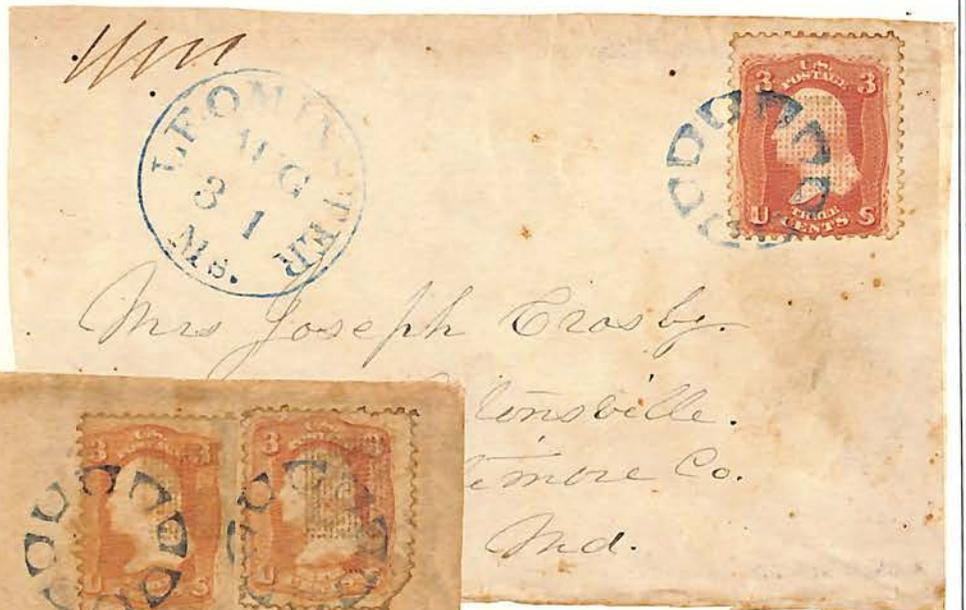 LEOMINSTER
AUG
31
Ms.
3 U.S. POSTAGE 3
U THREE CENTS S
Mrs Joseph Crosby.
tonsville.
timore Co.
Md.
3 U.S. 3
U S
3
U S